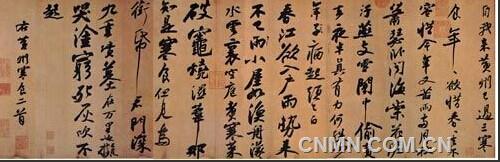 自我來黃州已過三寒
食年年欲惜春春去不
容惜今年又苦雨兩月秋
蕭瑟臥聞海棠花泥
汙燕支雪闇中偷負
去夜半真有力何殊少
年子病起須已白
春江欲入戶雨勢來
不已雨小屋如漁舟濛濛
水雲裏空庖煮寒菜
破竈燒濕葦那
知是寒食但見烏
銜帋君門深
九重墳墓在万里也擬
哭塗窮死灰吹不
起
右黃州寒食二首
CNMN.COM.CN